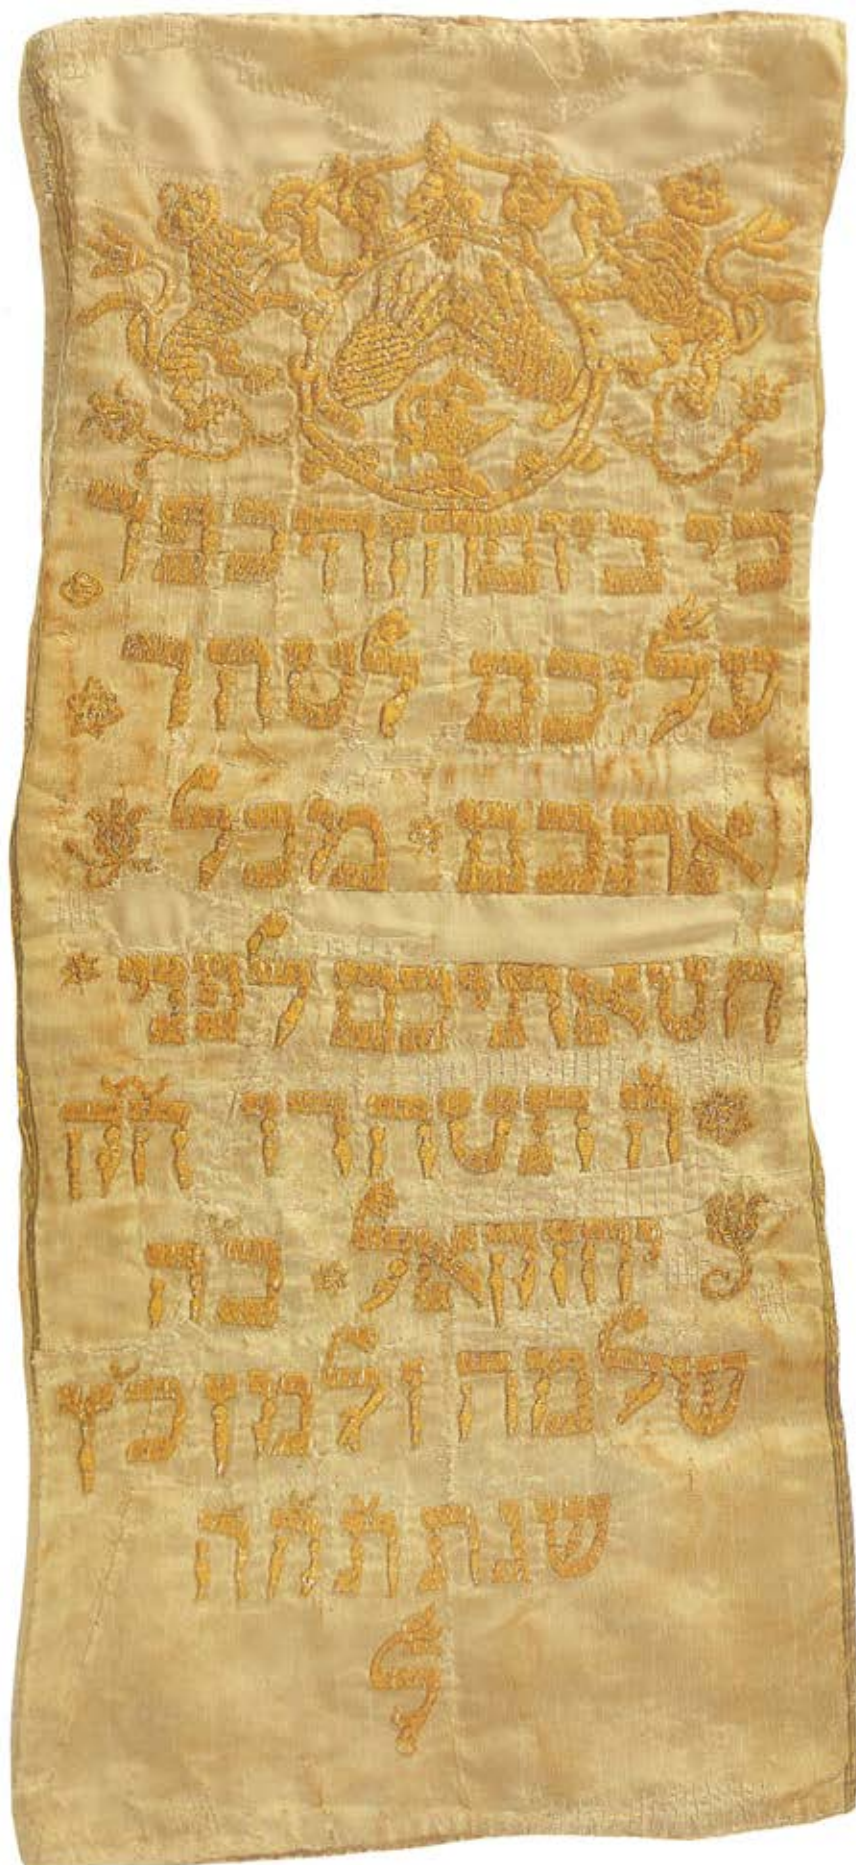 כי ביום הזה יכפר
עליכם לטהר
אתכם מכל
חטאתיכם לפני
ה' תטהרו
יחזקאל בה
שלמה זלמן כ"ץ
שנת
ל